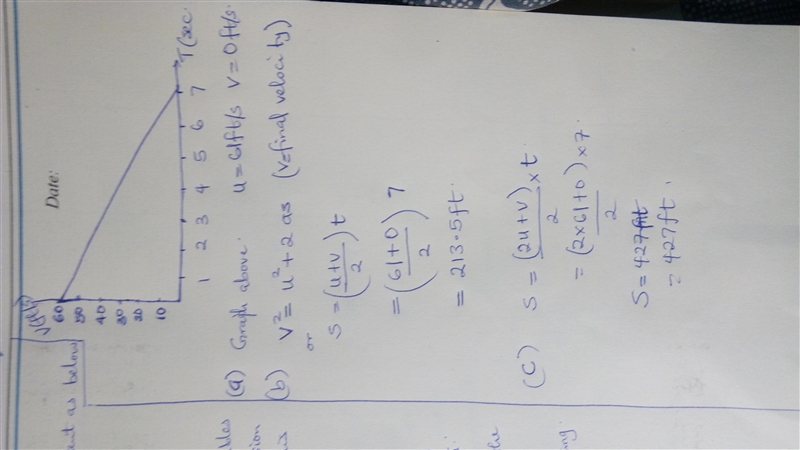 Date:
V(ft/s)
60
50
40
30
20
10
1 2 3 4 5 6 7 T(sec
(a) Graph above. u = 61ft/s v = 0ft/s
(b) v² = u² + 2as (v=final velocity)
or
s = (u+v/2)t
= (61+0/2) 7
= 213.5ft.
(c) s = (2u+v)/2 × t.
= (2×61+0)/2 ×7.
S = 427ft
= 427ft.
ent as below
bles
sion
is
the
ng.